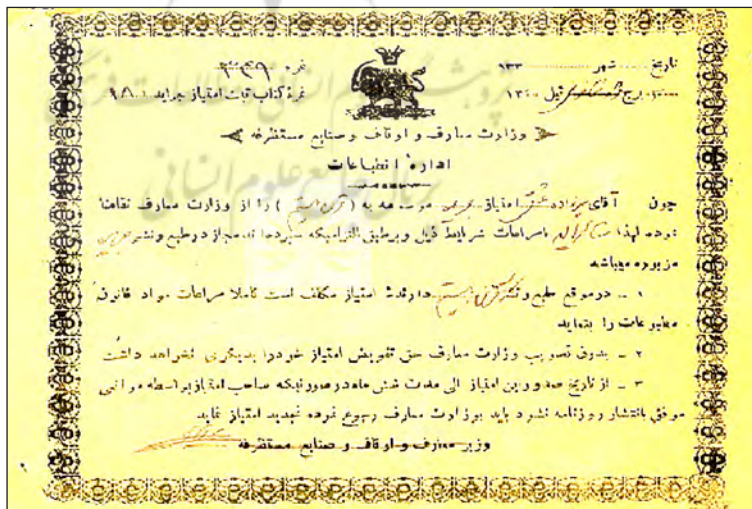 تاریخ شهر ۱۳۳
نمره ۳۳۴۹
برج قبل ۱۳۰۰
نمرهٔ کتاب ثبت امتیاز جراید
وزارت معارف و اوقاف و صنایع مستظرفه
ادارهٔ انطباعات
چون آقای میرزاده عشقی امتیاز موسومه به ( قرن بیستم ) را از وزارت معارف تقاضا
نموده لهذا با مراعات شرایط ذیل و بر طبق التزامیکه سپرده‌اند مجاز در طبع و نشر
مزبوره میباشد
۱ ـ در موقع طبع و نشر قرن بیستم دارندهٔ امتیاز مکلف است کاملا مراعات مواد قانون
مطبوعات را بنماید
۲ ـ بدون تصویب وزارت معارف حق تفویض امتیاز خود را بدیگری نخواهد داشت
۳ ـ از تاریخ صدور این امتیاز الی مدت شش ماه در صورتیکه صاحب امتیاز بواسطه موانعی
موفق بانتشار روزنامه نشود باید بوزارت معارف رجوع نموده تجدید امتیاز نماید
وزیر معارف و اوقاف و صنایع مستظرفه
پژوهشگاه علوم انسانی و مطالعات فرهنگی
پرتال جامع علوم انسانی